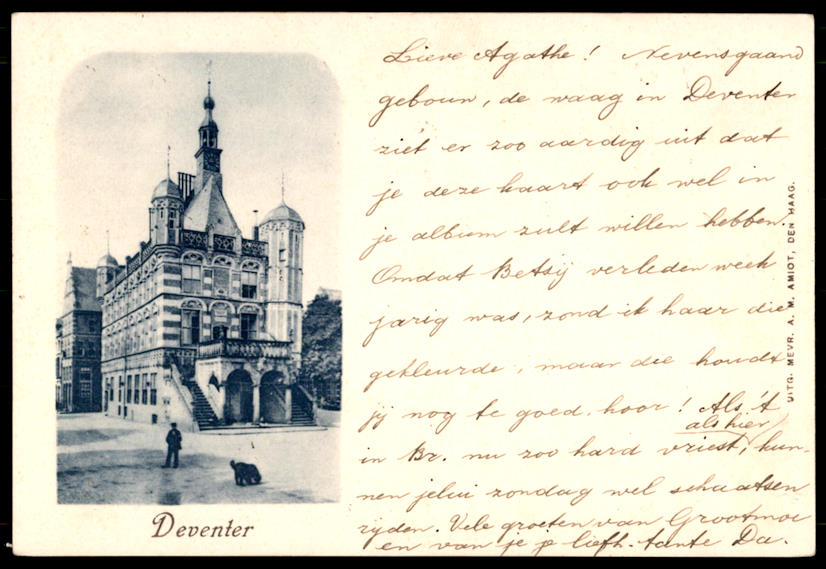 Lieve Agathe! Nevensgaand
gebouw, de waag in Deventer
ziet er zoo aardig uit dat
je deze kaart ook wel in
je album zult willen hebben.
Omdat Betsij verleden week
jarig was, zond ik haar die
gekleurde, maar die houdt
jij nog te goed, hoor! Als 't
als hier
in Br. nu zoo hard vriest, kun-
nen jelui zondag wel schaatsen
rijden. Vele groeten van Grootmoe
en van je liefh. tante Da.
Deventer
UITG. MEVR. A. M. AMIOT, DEN HAAG.